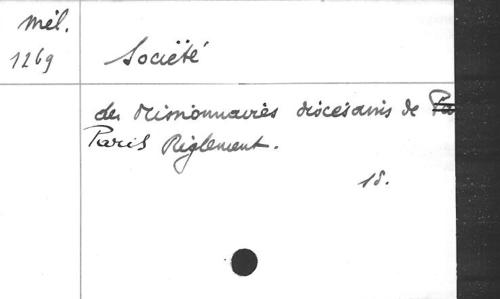 Mél.
1269
Société
des Missionnaires diocésains de Pa
Paris Règlement.
1 d.